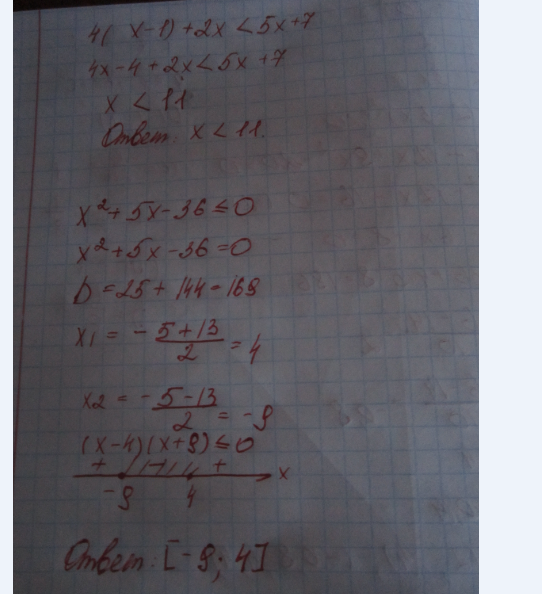 4(x-1)+2x<5x+7
4x-4+2x<5x+7
x<11
Ответ: x<11.
x²+5x-36≤0
x²+5x-36=0
D=25+144=169
x1 = -5+13/2 = 4
x2 = -5-13/2 = -9
(x-4)(x+9)≤0
+ - + x
-9 4
Ответ: [-9; 4]